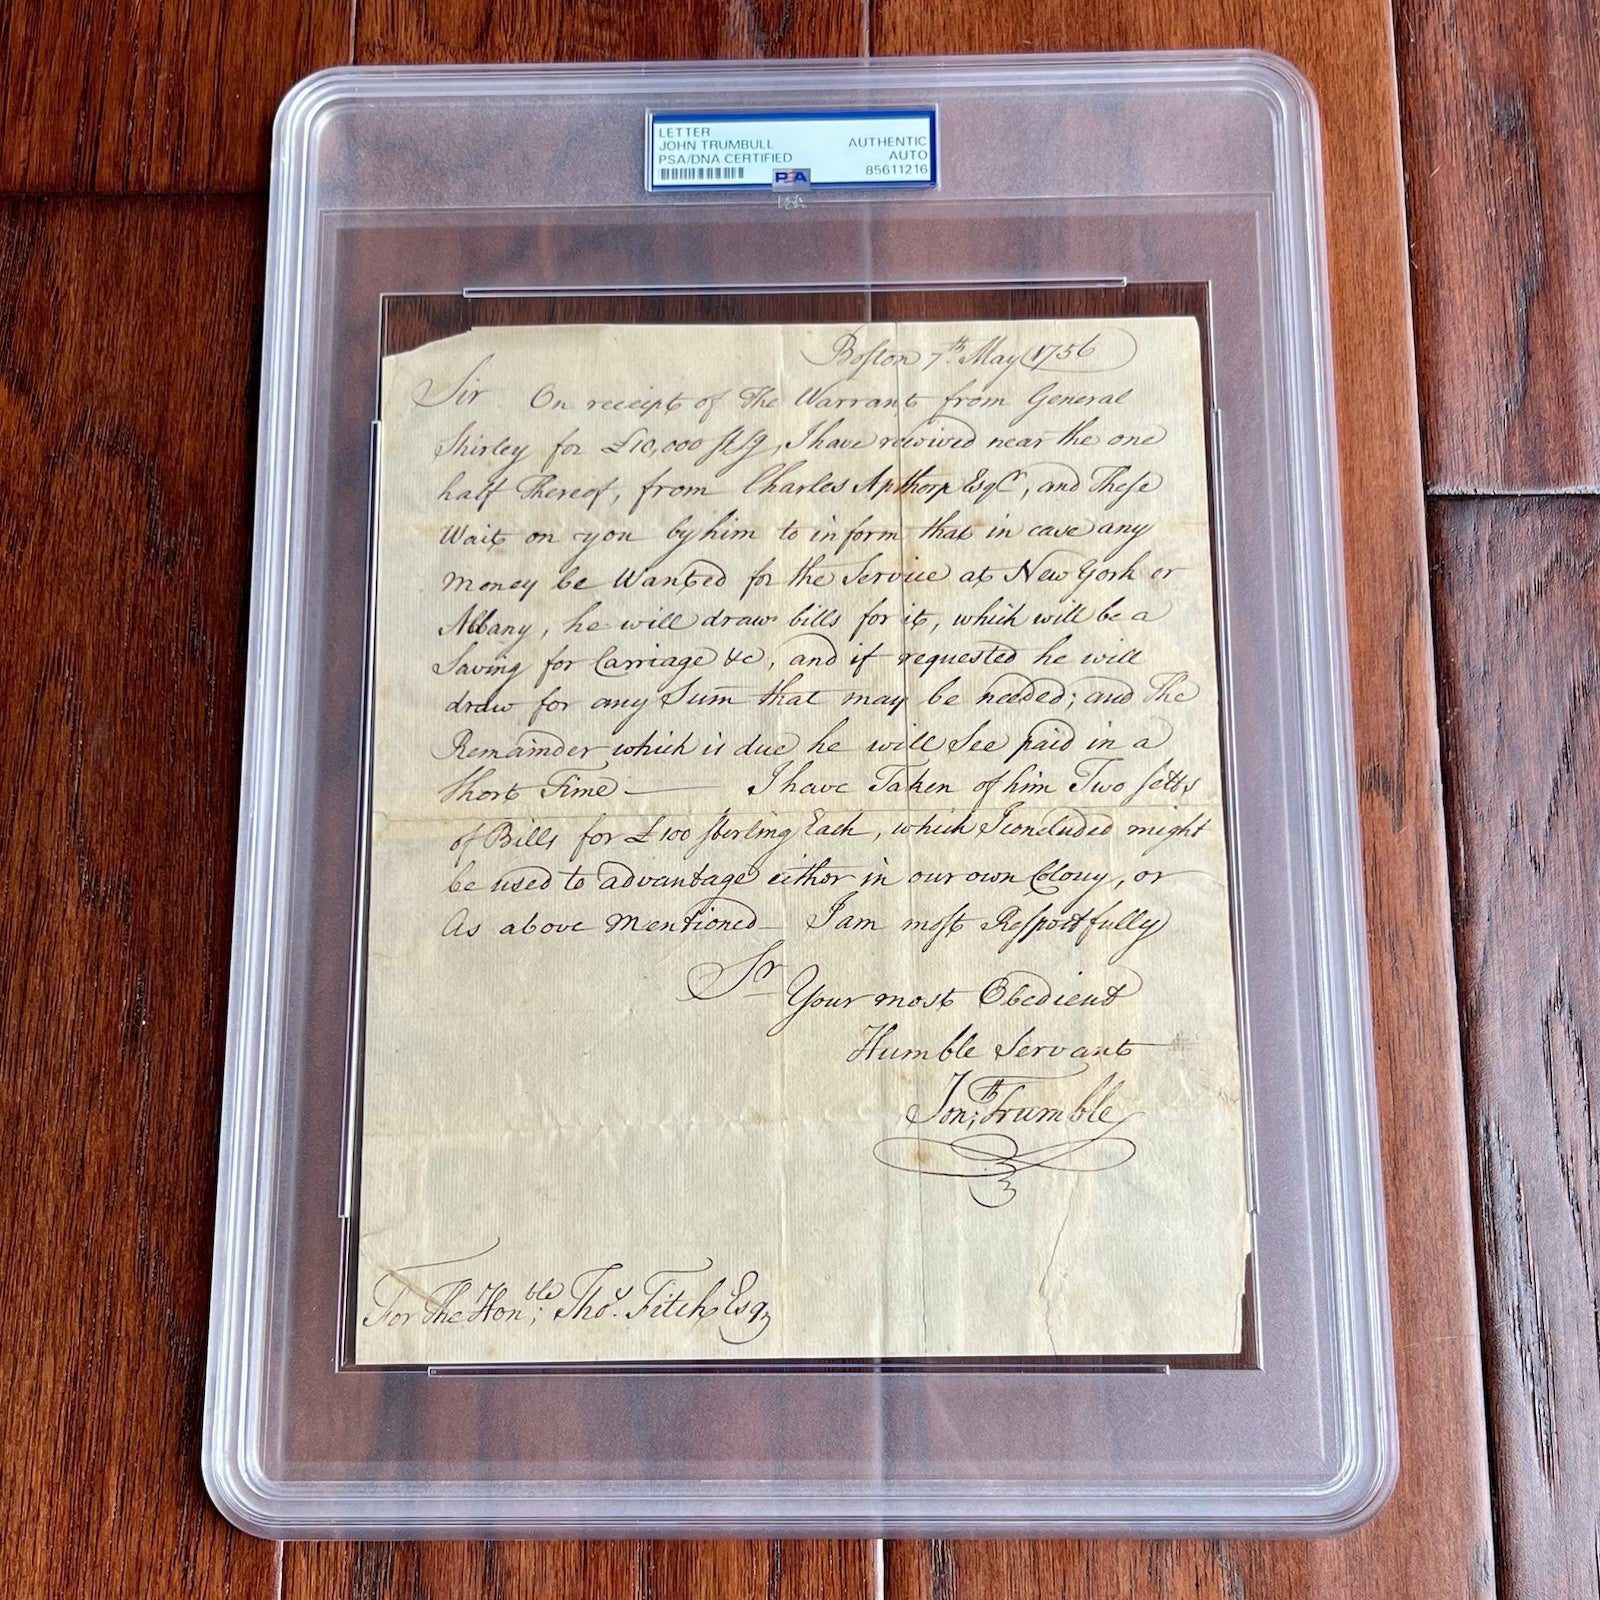 LETTER
JOHN TRUMBULL
PSA/DNA CERTIFIED
AUTHENTIC
AUTO
85611216
PSA
Boston 7th May 1756
Sir On receipt of The Warrant from General
Shirley for £10,000 stg, I have received near the one
half Thereof, from Charles Apthorp Esqr, and These
Wait on you by him to inform that in case any
Money be Wanted for the Service at New York or
Albany, he will draw bills for it, which will be a
Saving for Carriage &c, and if requested he will
draw for any Sum that may be needed; and The
Remainder which is due he will See paid in a
Short Time — I have Taken of him Two Setts
of Bills for £100 Sterling Each, which I concluded might
be used to advantage either in our own Colony, or
As above Mentioned — I am most Respectfully
Sr
Your most Obedient
Humble Servant
Jonth; Trumble
For The Honble; Thos. Fitch Esq